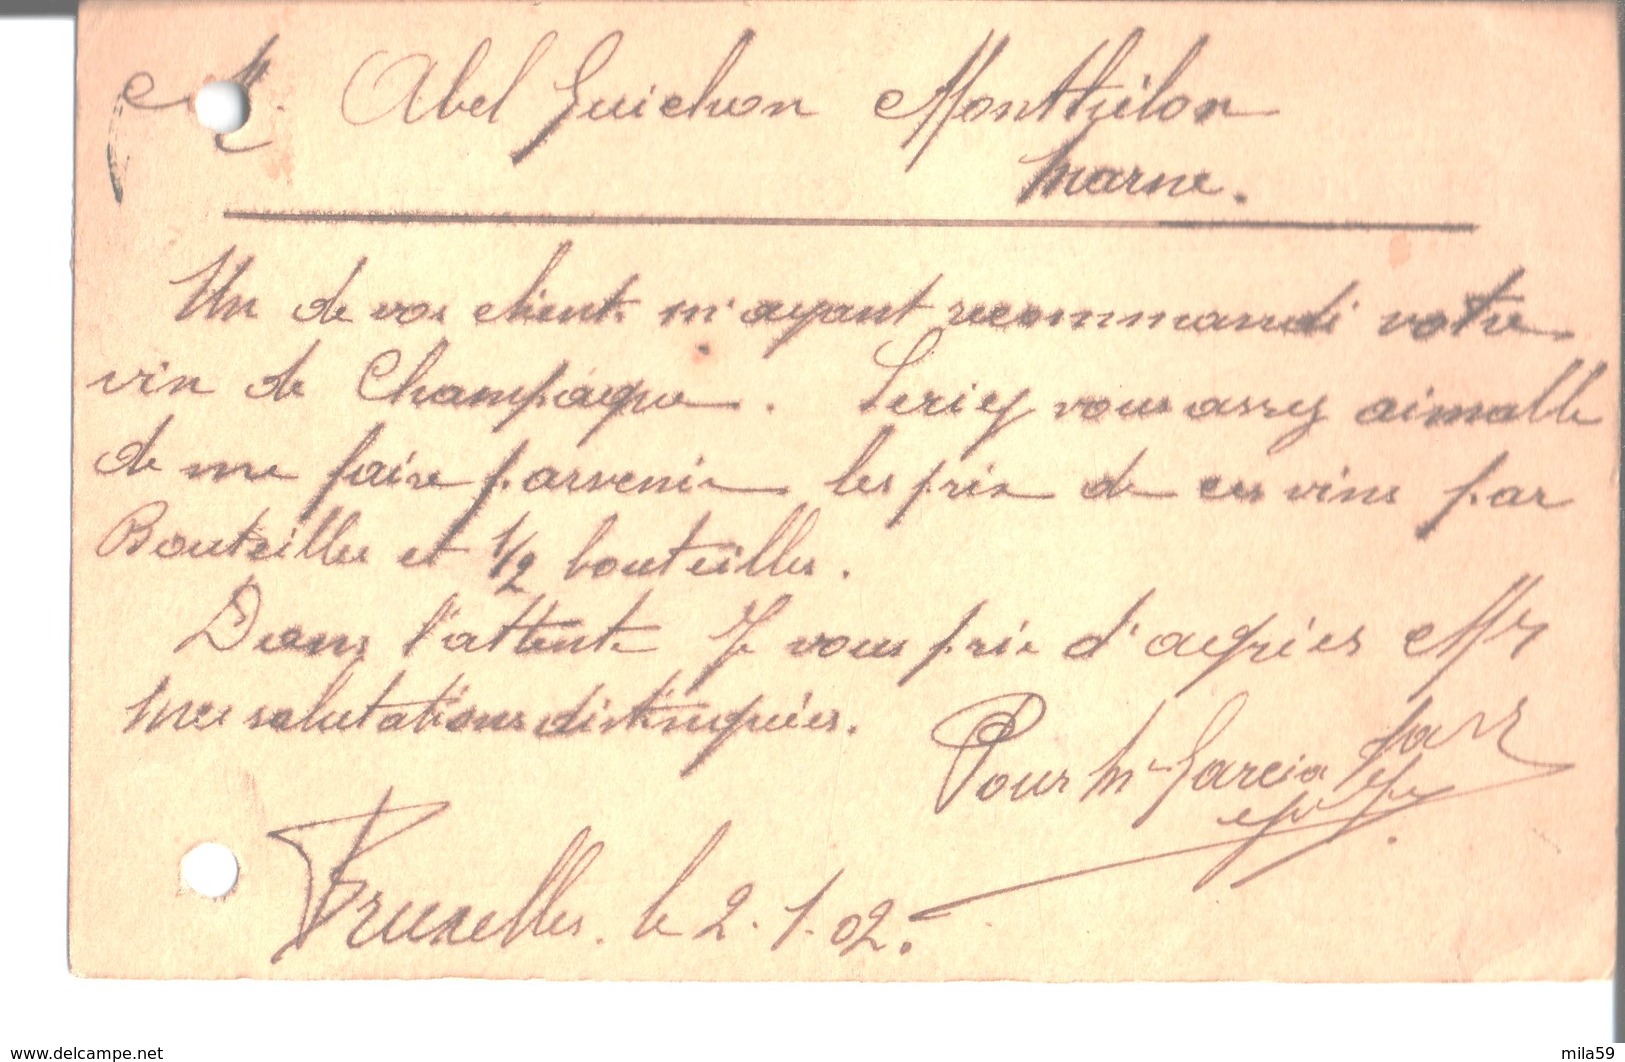 Mr. Abel Guichon Monthélon
Marne.
Un de vos clients m'ayant recommandé votre
vin de Champagne. Seriez vous assez aimable
de me faire parvenir les prix de ces vins par
Bouteilles et 1/2 bouteilles.
Dans l'attente Je vous prie d'agréer Mr
mes salutations distinguées.
Pour Mr Garcia
Bruxelles. le 2.1.02.
www.delcampe.net
mila59